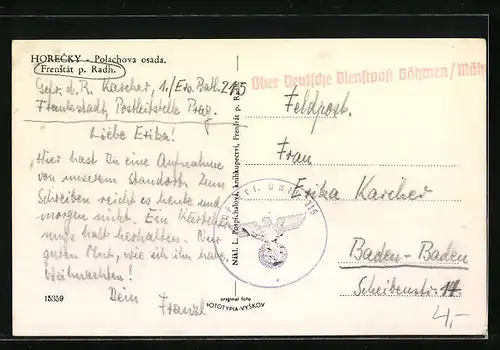 HOREČKY - Polachova osada.
Frenštát p. Radh.
Gefr. d. R. Karcher, 1./Ers. Batl. 215
Frankstadt, Postleitstelle Prag.
Liebe Erika!
Hier hast Du eine Aufnahme
von unserem Standort. Zum
Schreiben reicht es heute und
morgen nicht. Ein Kärtchen
muss halt herhalten. Nur
guten Mut, wie ich ihn habe.
Weihnachten!
Dein
Franzl
15359
Nákl. L. Pospíchalová, knihkupectví, Frenštát p. Radh.
original foto
FOTOTYPIA-VYŠKOV
Über Deutsche Dienstpost Böhmen/Mäh
Feldpost.
Frau
Erika Karcher
Baden-Baden
Scheibenstr. 14
4,-